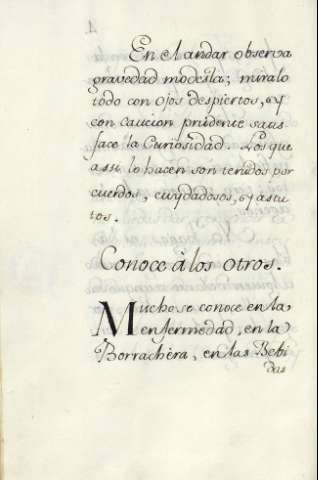 4
En el andar observa
gravedad modesta; miralo
todo con ojos despiertos, y
con caucion prudente satis
face la Curiosidad. Los que
assi lo hacen son tenidos por
cuerdos, cuydadosos, y astu
tos.
Conoce à los otros.
Mucho se conoce en la
enfermedad, en la
Borrachera, en las Bebi
das